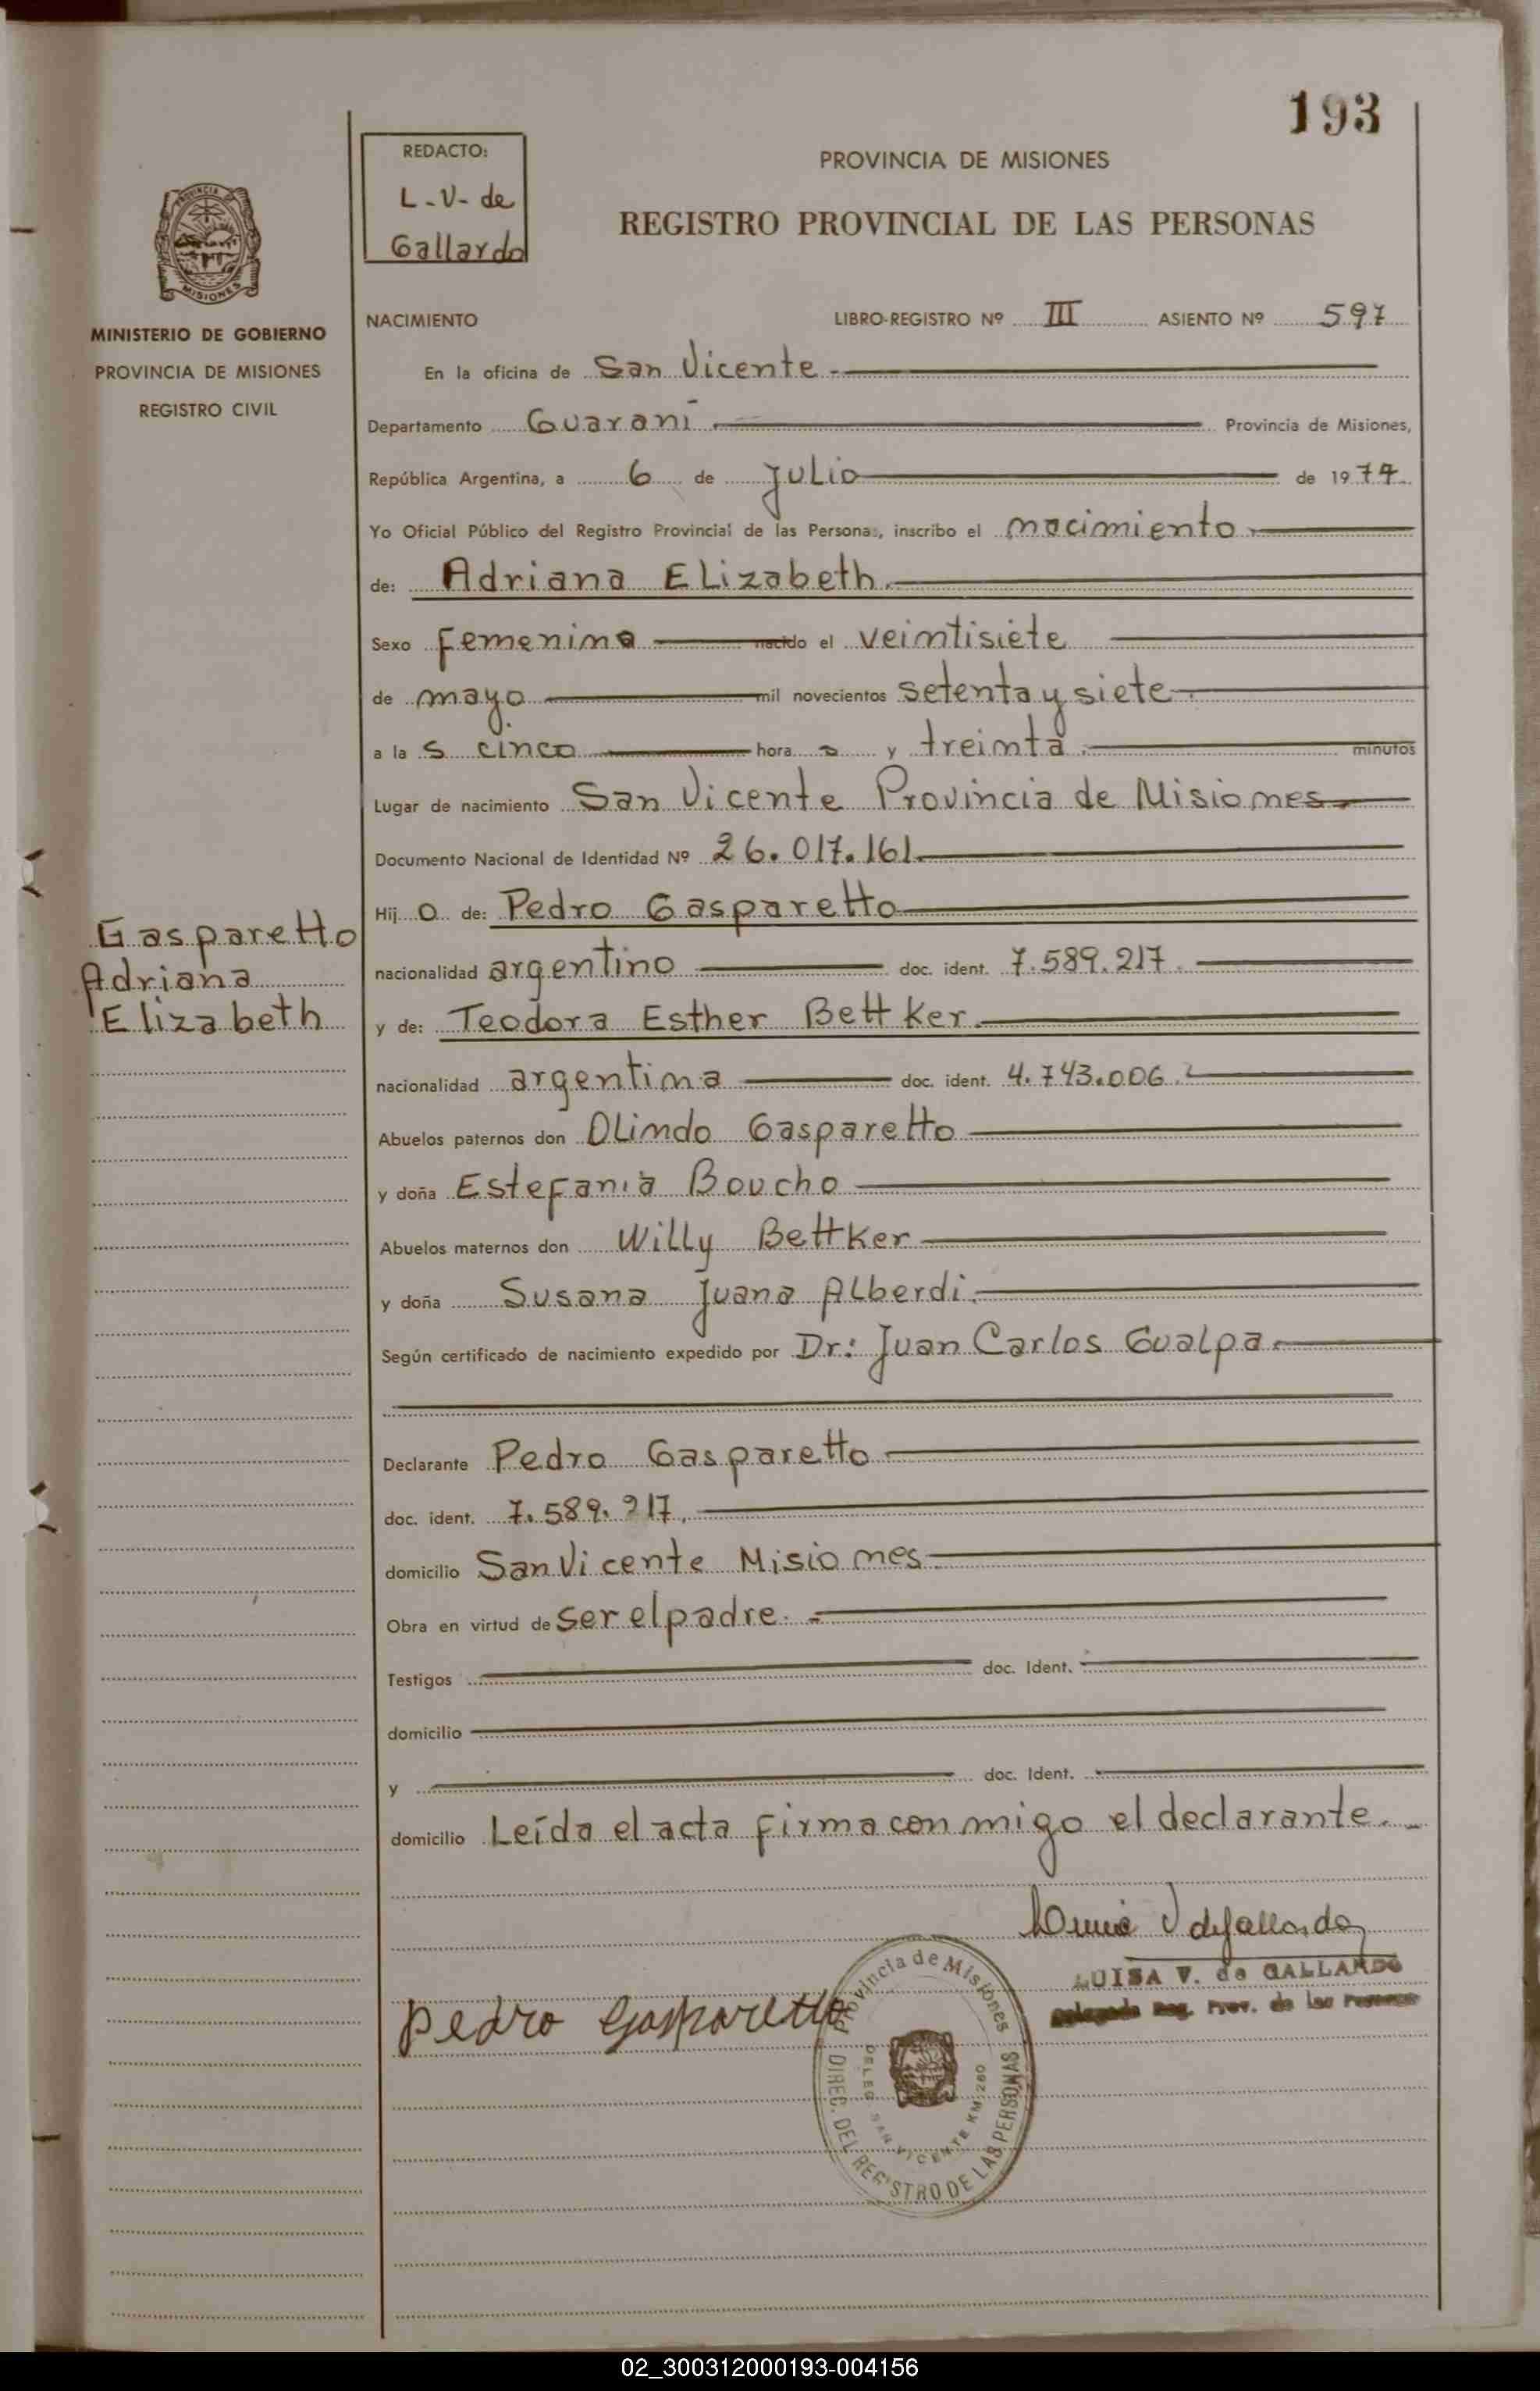 193
REDACTO:
L-V- de
Gallardo
PROVINCIA DE MISIONES
REGISTRO PROVINCIAL DE LAS PERSONAS
PROVINCIA
MISIONES
MINISTERIO DE GOBIERNO
PROVINCIA DE MISIONES
REGISTRO CIVIL
NACIMIENTO LIBRO-REGISTRO Nº III ASIENTO Nº 597
En la oficina de San Vicente
Departamento Guarani Provincia de Misiones,
República Argentina, a 6 de julio de 1977.
Yo Oficial Público del Registro Provincial de las Personas, inscribo el nacimiento
de: Adriana Elizabeth
Sexo femenino nacido el veintisiete
de mayo mil novecientos setenta y siete
a las cinco hora s y treinta minutos
Lugar de nacimiento San Vicente Provincia de Misiones
Documento Nacional de Identidad Nº 26.017.161
Hij o de: Pedro Gasparetto
Gasparetto
Adriana
Elizabeth
nacionalidad argentino doc. ident. 7.589.217.
y de: Teodora Esther Bettker
nacionalidad argentina doc. ident. 4.743.006.
Abuelos paternos don Olindo Gasparetto
y doña Estefania Boucho
Abuelos maternos don Willy Bettker
y doña Susana Juana Alberdi.
Según certificado de nacimiento expedido por Dr: Juan Carlos Gualpa.
Declarante Pedro Gasparetto
doc. ident. 7.589.217.
domicilio San Vicente Misiones
Obra en virtud de ser el padre.
Testigos doc. Ident.
domicilio
y doc. Ident.
domicilio Leída el acta firma conmigo el declarante.
LUISA V. de GALLARDO
Delegada Reg. Prov. de las Personas
Pedro Gasparetto
Provincia de Misiones
DIREC. DEL REGISTRO DE LAS PERSONAS
DELEG. SAN VICENTE KM. 260
02_300312000193-004156